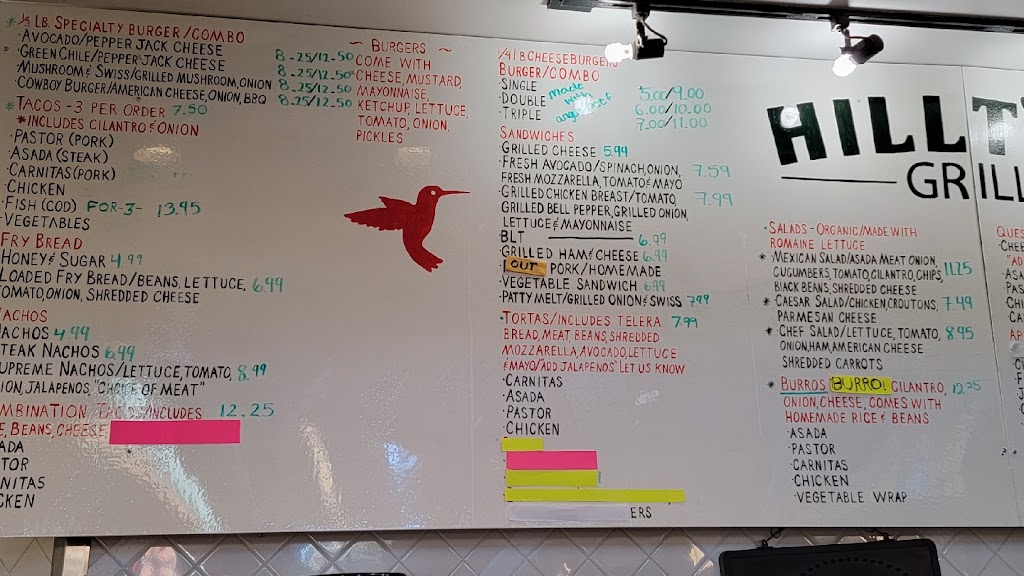 * ⅓ LB. SPECIALTY BURGER/COMBO
· AVOCADO/PEPPER JACK CHEESE 8.25/12.50
· GREEN CHILE/PEPPER JACK CHEESE 8.25/12.50
· MUSHROOM & SWISS/GRILLED MUSHROOM, ONION 8.25/12.50
COWBOY BURGER/AMERICAN CHEESE, ONION, BBQ 8.25/12.50
* TACOS - 3 PER ORDER 7.50
* INCLUDES CILANTRO & ONION
· PASTOR (PORK)
· ASADA (STEAK)
· CARNITAS (PORK)
· CHICKEN
· FISH (COD) FOR -3- 13.95
· VEGETABLES
FRY BREAD
HONEY & SUGAR 4.99
LOADED FRY BREAD/BEANS, LETTUCE, 6.99
TOMATO, ONION, SHREDDED CHEESE
NACHOS
NACHOS 4.99
STEAK NACHOS 6.99
SUPREME NACHOS/LETTUCE, TOMATO, 8.99
ION, JALAPENOS, "CHOICE OF MEAT"
MBINATION TACOS/INCLUDES 12.25
E, BEANS, CHEESE
ADA
TOR
NITAS
CKEN
~ BURGERS ~
COME WITH
CHEESE, MUSTARD,
MAYONNAISE,
KETCHUP, LETTUCE,
TOMATO, ONION,
PICKLES
1/4 LB. CHEESEBURGER
BURGER/COMBO
· SINGLE 5.00/9.00
· DOUBLE 6.00/10.00
· TRIPLE 7.00/11.00
made
with
angus beef
SANDWICHES
GRILLED CHEESE 5.99
· FRESH AVOCADO/SPINACH, ONION, 7.59
FRESH MOZZARELLA, TOMATO & MAYO
· GRILLED CHICKEN BREAST/TOMATO, 7.99
GRILLED BELL PEPPER, GRILLED ONION,
LETTUCE & MAYONNAISE
BLT 6.99
GRILLED HAM & CHEESE 6.99
OUT PORK/HOMEMADE
VEGETABLE SANDWICH 6.99
· PATTY MELT/GRILLED ONION & SWISS 7.99
· TORTAS/INCLUDES TELERA 7.99
BREAD, MEAT, BEANS, SHREDDED
MOZZARELLA, AVOCADO, LETTUCE
& MAYO/"ADD JALAPENOS" LET US KNOW
· CARNITAS
· ASADA
· PASTOR
· CHICKEN
ERS
HILLT
GRILL
· SALADS - ORGANIC/MADE WITH
ROMAINE LETTUCE
* MEXICAN SALAD/ASADA MEAT, ONION,
CUCUMBERS, TOMATO, CILANTRO, CHIPS, 11.75
BLACK BEANS, SHREDDED CHEESE
* CAESAR SALAD/CHICKEN, CROUTONS, 7.49
PARMESAN CHEESE
* CHEF SALAD/LETTUCE, TOMATO, 8.95
ONION, HAM, AMERICAN CHEESE
SHREDDED CARROTS
* BURROS BURRO! CILANTRO,
ONION, CHEESE, COMES WITH
HOMEMADE RICE & BEANS
· ASADA
· PASTOR
· CARNITAS
· CHICKEN
· VEGETABLE WRAP
QUES
CHEE
"AD
ASA
PAS
CHI
CA
AP